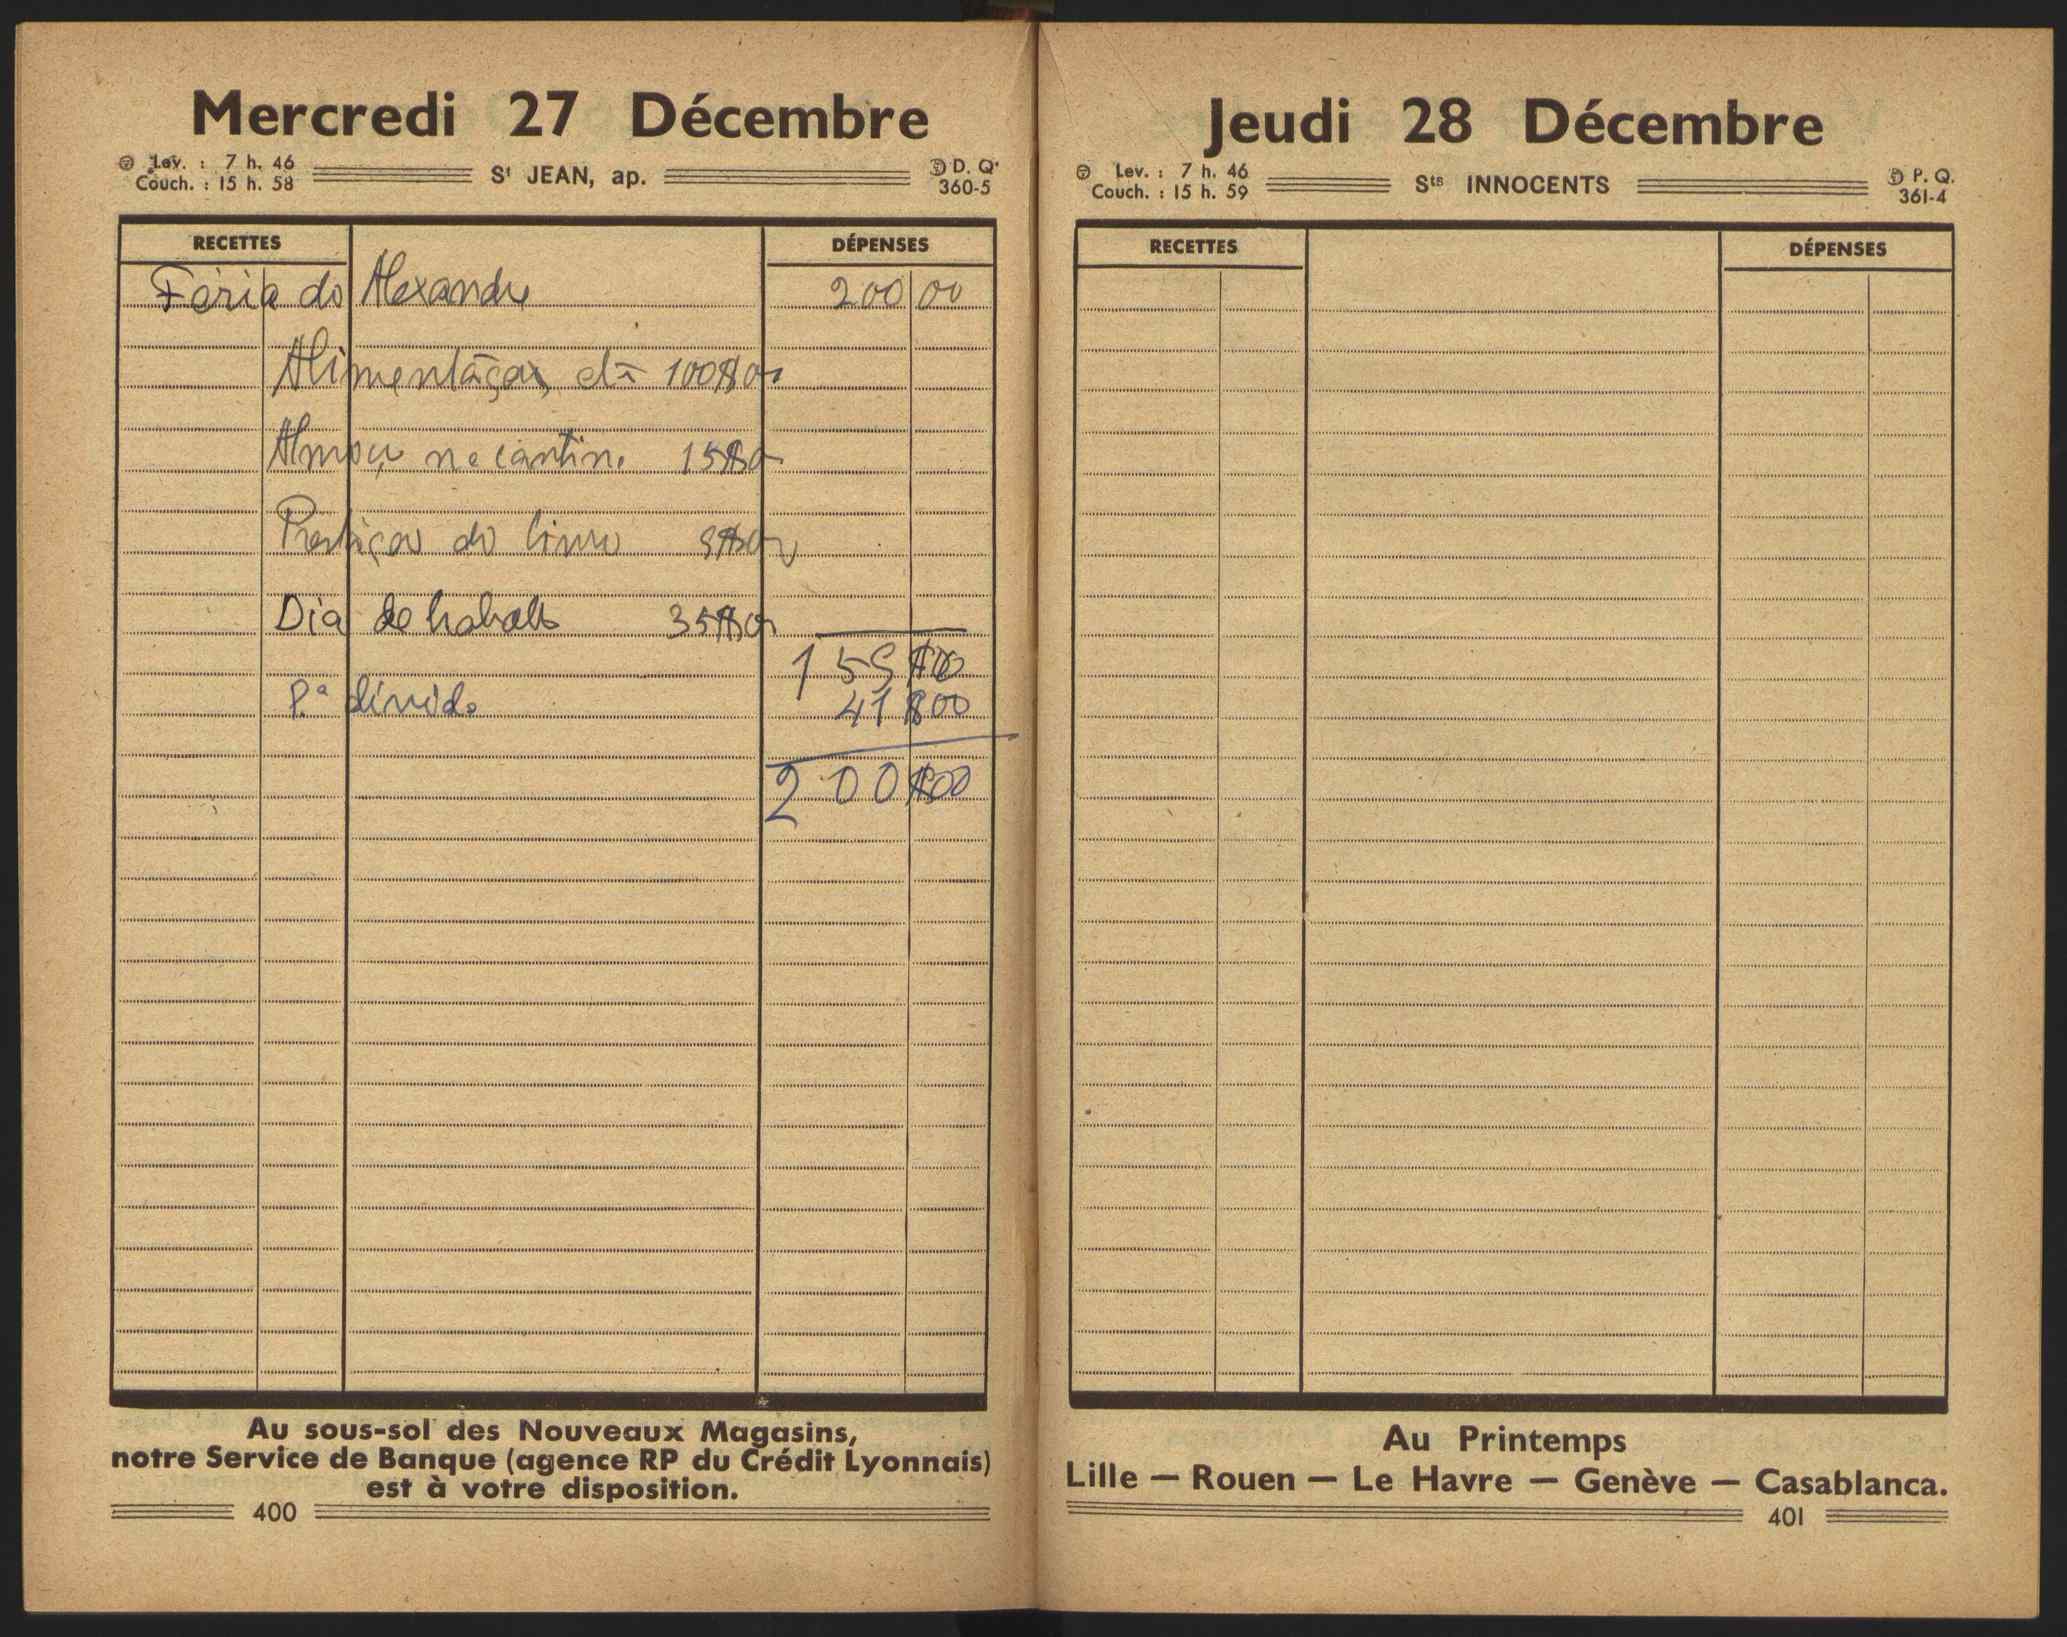 Mercredi 27 Décembre
Lev. : 7 h. 46
Couch. : 15 h. 58
St JEAN, ap.
D. Q.
360-5
RECETTES DÉPENSES
Féria do Alexandre 200 00
Alimentação, etc 100$00
Almoço na cantina 15$00
Prestação do livro 9$00
Dia de trabalho 35$00
159$00
P.ª dívida 41$00
200$00
Au sous-sol des Nouveaux Magasins,
notre Service de Banque (agence RP du Crédit Lyonnais)
est à votre disposition.
400
Jeudi 28 Décembre
Lev. : 7 h. 46
Couch. : 15 h. 59
Sts INNOCENTS
P. Q.
361-4
RECETTES DÉPENSES
Au Printemps
Lille — Rouen — Le Havre — Genève — Casablanca.
401